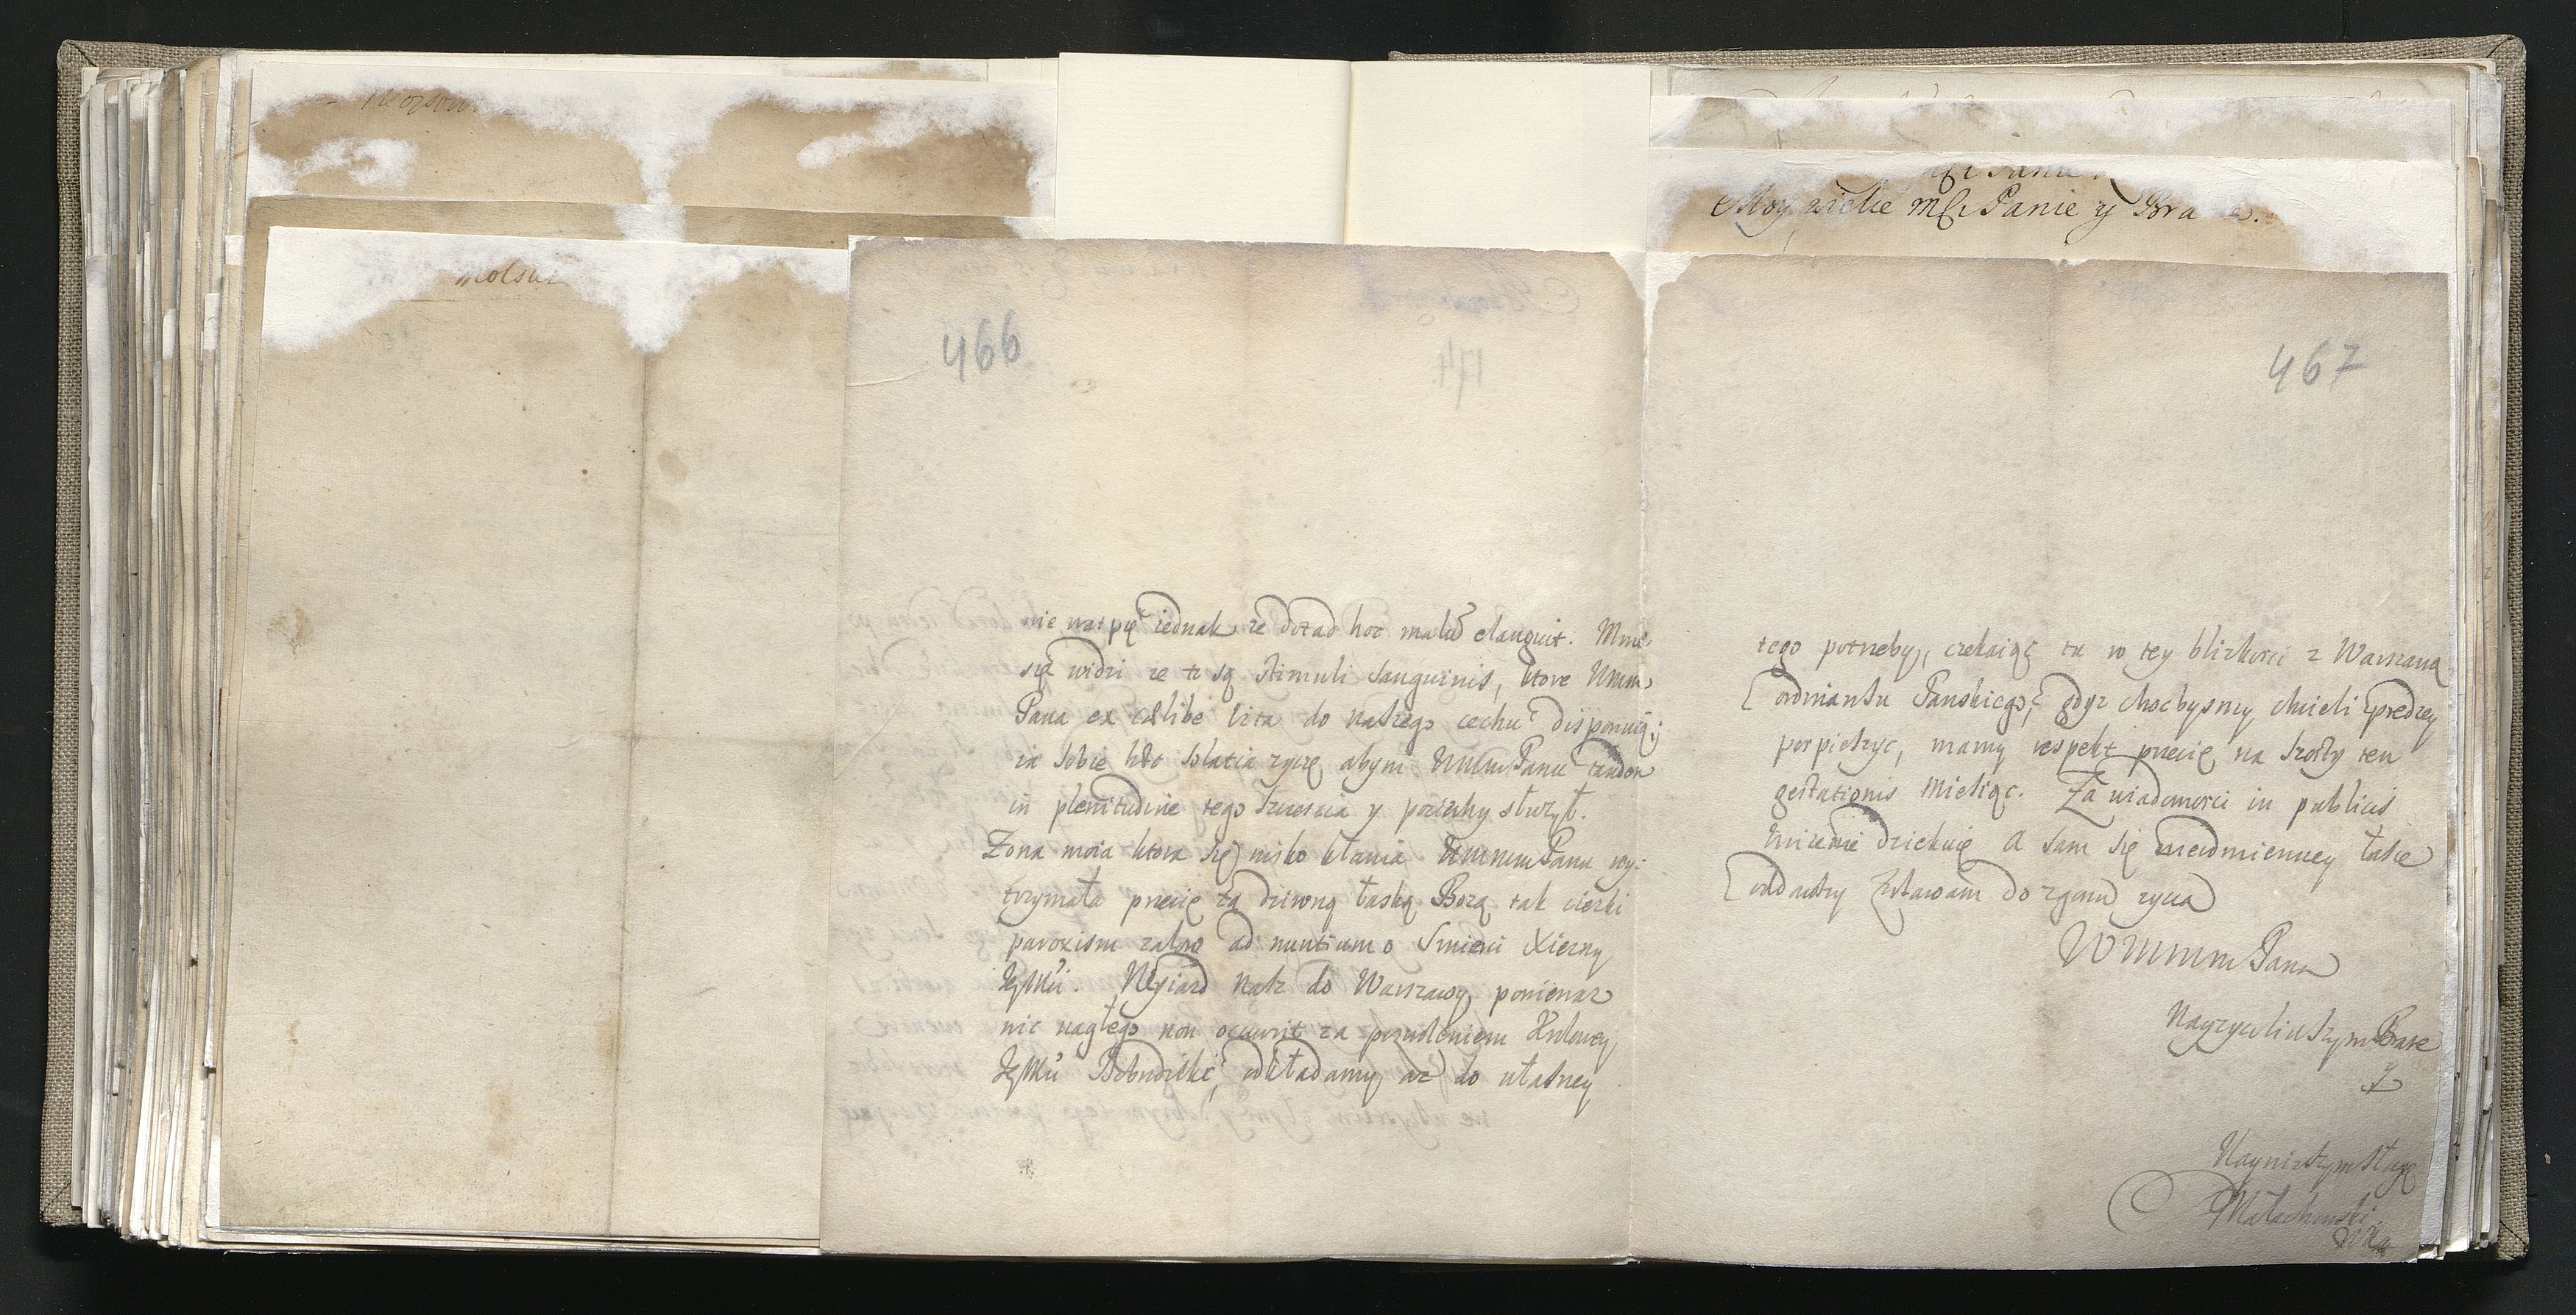 466
nie wątpię iednak ze dotad hoc malũ elanguit. Mnie
się widzi ze te są stimuli sanguinis, ktore Wmm
Pana ex cælibe vita do naszego cechu disponuią;
ia sobie hoc solatia zyczę abym WmmPanu tandem
in plenitudine tego szczescia y pociechy słuzył.
Zona moia ktora się nisko kłania WmmmPanu wy:
trzymała przecię za dziwną łaską Bozą tak cięzki
paroxism zalu ad nuntium o smierci Xiezny
JeyMći. Wyiazd nasz do Warszawy poniewaz
nic nagłego non occurrit za pozwoleniem Krolowey
JeyMći Dobrodiki, odkładamy az do własney
467
tego potrzeby, czekaiąc tu w tey blizkosci z Warszawą
ordinansu Panskiego, gdyz chocbysmy chcieli prędzey
pospieszyc, mamy respekt przecię na szosty ten
gestationis Miesiąc. Za wiadomosci in publicis
unizenie dziekuię A sam się nieodmienney łasce
oddawszy zostawam do zgonu zycia
WMmm Pana
Nayzyczliwszym Brate
y
Nayniszym sługą
Małachowski
Moy wielce mći Panie y Bra